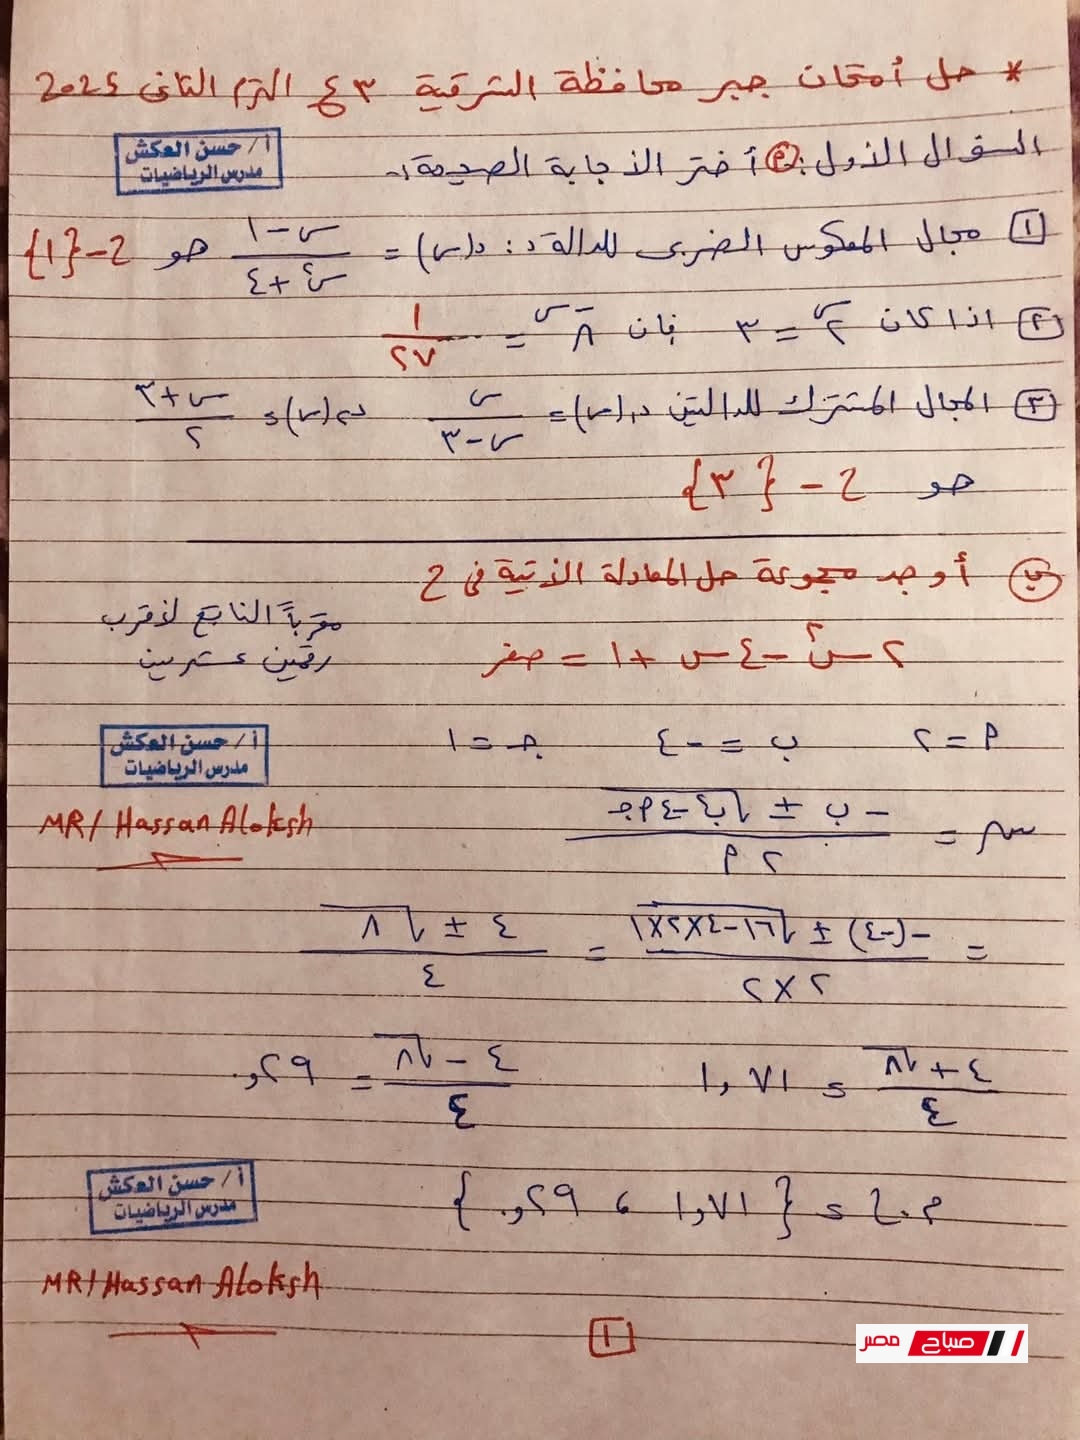 * حل أمتحان جبر محافظة الشرقية ٣ع الترم الثانى 2024
أ/ حسن العكش
مدرس الرياضيات
السؤال الأول: (أ) أختر الأجابة الصحيحة:-
[١] مجال المعكوس الضربى للدالة د: د(س) = (س - ١)/(س٢ + ٤) هو ح - {١}
[٢] اذا كان ٢^س = ٣ فإن ٨^-س = ١/٢٧
[٣] المجال المشترك للدالتين د١(س) = س/(س - ٣) د٢(س) = (س + ٣)/٢
هو ح - {٣}
(ب) أوجد مجموعة حل المعادلة الأتية فى ح
مقرباً الناتج لأقرب
رقمين عشريين
٢س٢ - ٤س + ١ = صفر
أ = ٢ ب = -٤ جـ = ١
أ/ حسن العكش
مدرس الرياضيات
س = (-ب ± √(ب٢ - ٤أجـ))/(٢أ)
MR/ Hassan Aloksh
= (-(-٤) ± √(١٦ - ٤×٢×١))/(٢×٢) = (٤ ± √٨)/٤
(٤ + √٨)/٤ = ١,٧١ (٤ - √٨)/٤ = ٠,٢٩
م.ح = {١,٧١ ، ٠,٢٩}
أ/ حسن العكش
مدرس الرياضيات
MR/ Hassan Aloksh
[١]
صباح مصر